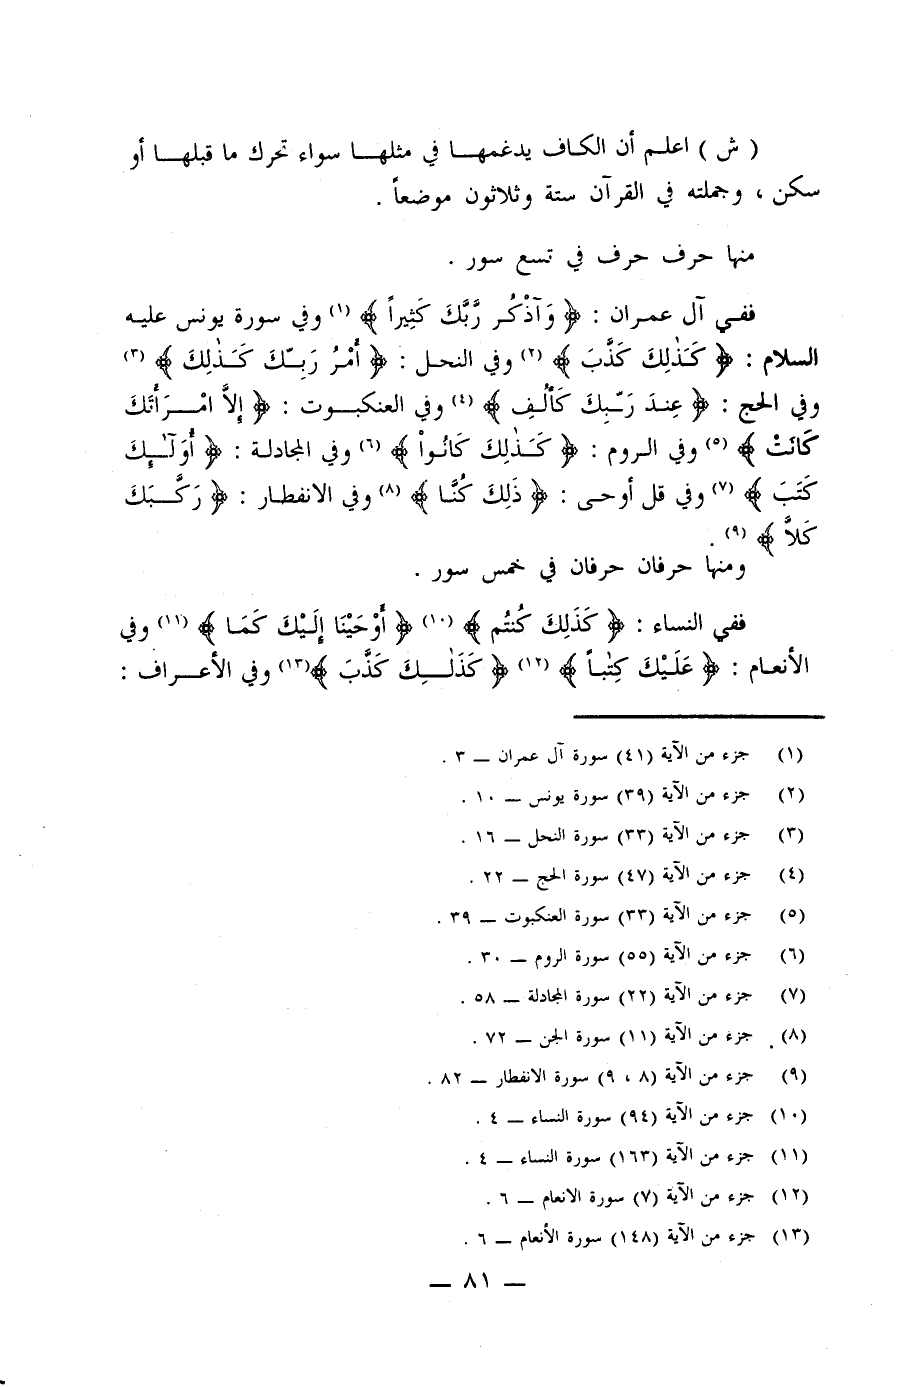 ( ش ) اعلم أن الكاف يدغمها في مثلها سواء تحرك ما قبلها أو
سكن ، وجملته في القرآن ستة وثلاثون موضعاً .
منها حرف حرف في تسع سور .
ففي آل عمران : ﴿ وَآذْكُر رَّبَّكَ كَثِيراً ﴾ (١) وفي سورة يونس عليه
السلام : ﴿ كَذٰلِكَ كَذَّبَ ﴾ (٢) وفي النحل : ﴿ أَمْرُ رَبِّكَ كَذٰلِكَ ﴾ (٣)
وفي الحج : ﴿ عِندَ رَبِّكَ كَأَلْفِ ﴾ (٤) وفي العنكبوت : ﴿ إِلاَّ امْرَأَتَكَ
كَانَتْ ﴾ (٥) وفي الروم : ﴿ كَذٰلِكَ كَانُواْ ﴾ (٦) وفي المجادلة : ﴿ أُوَلَٰٓئِكَ
كَتَبَ ﴾ (٧) وفي قل أوحى : ﴿ ذَلِكَ كُنَّا ﴾ (٨) وفي الانفطار : ﴿ رَكَّبَكَ
كَلاَّ ﴾ (٩) .
ومنها حرفان حرفان في خمس سور .
ففي النساء : ﴿ كَذَلِكَ كُنتُم ﴾ (١٠) ﴿ أَوْحَيْنَا إِلَيْكَ كَمَا ﴾ (١١) وفي
الأنعام : ﴿ عَلَيْكَ كِتٰباً ﴾ (١٢) ﴿ كَذَٰلِكَ كَذَّبَ ﴾(١٣) وفي الأعراف :
(١) جزء من الآية (٤١) سورة آل عمران ــ ٣ .
(٢) جزء من الآية (٣٩) سورة يونس ــ ١٠ .
(٣) جزء من الآية (٣٣) سورة النحل ــ ١٦ .
(٤) جزء من الآية (٤٧) سورة الحج ــ ٢٢ .
(٥) جزء من الآية (٣٣) سورة العنكبوت ــ ٣٩ .
(٦) جزء من الآية (٥٥) سورة الروم ــ ٣٠ .
(٧) جزء من الآية (٢٢) سورة المجادلة ــ ٥٨ .
(٨) جزء من الآية (١١) سورة الجن ــ ٧٢ .
(٩) جزء من الآية (٨ ، ٩) سورة الانفطار ــ ٨٢ .
(١٠) جزء من الآية (٩٤) سورة النساء ــ ٤ .
(١١) جزء من الآية (١٦٣) سورة النساء ــ ٤ .
(١٢) جزء من الآية (٧) سورة الانعام ــ ٦ .
(١٣) جزء من الآية (١٤٨) سورة الأنعام ــ ٦ .
ــ ٨١ ــ